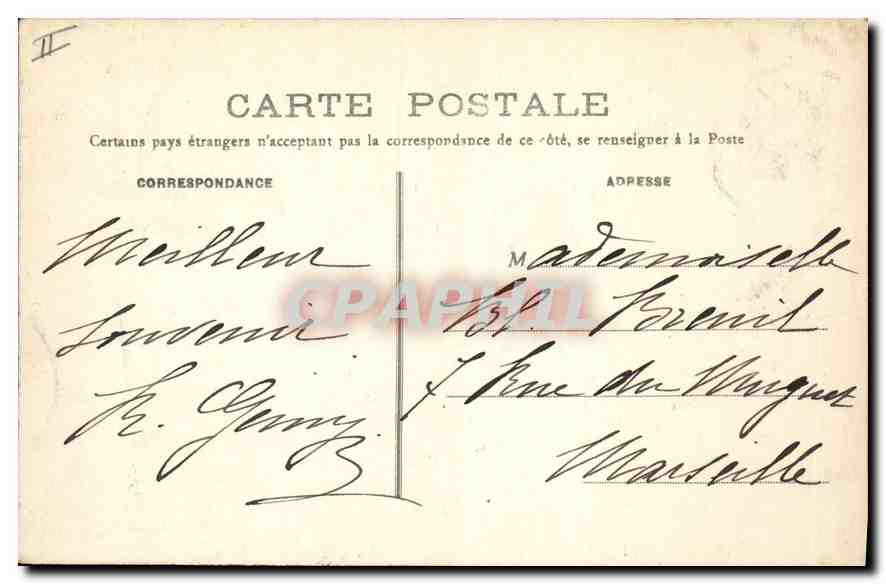 II
CARTE POSTALE
Certains pays étrangers n'acceptant pas la correspondance de ce côté, se renseigner à la Poste
CORRESPONDANCE
Meilleur
Souvenir
ADRESSE
Mademoiselle
Bl. Breuil
7 Rue du Muguet
Marseille
CPAPHIL